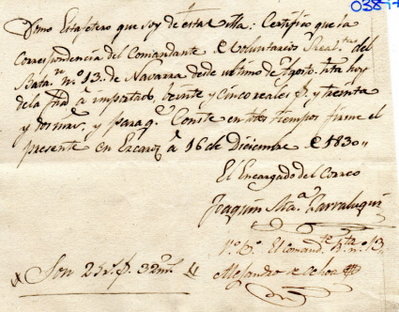 038
Como Estafetero que soy de esta villa. Certifico que la
Correspondencia del Comandante e Voluntarios Realtas del
Batan nº 13. de Navarra desde ultimo de Agosto hta hoy
de la fha a importado, beinte y cinco reales f. y treinta
y dos mars, y para q. Conste en todos tiempos firmo el
presente en Ezcaroz â 16 de Diciembre e 1830,,
El Encargado del Correo
Joaquin Ma Zarraluqui
Vº. Bº. El Comandte Bta nº 13
Son 25 rs. f. 32 ms
Alejandro de Ochoa